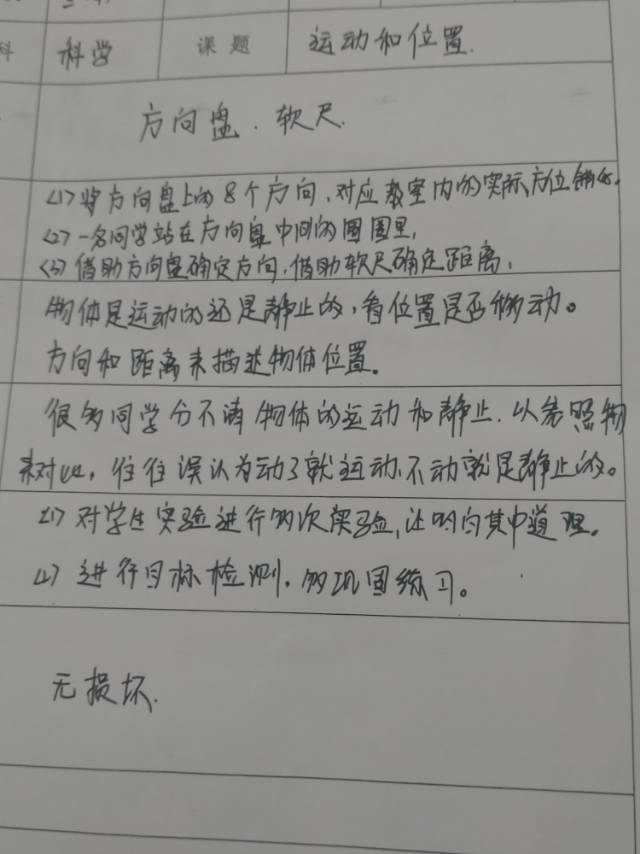 科 科学 课题 运动和位置.
方向盘. 软尺.
<1>将方向盘上的8个方向,对应教室内的实际方位
<2>一名同学站在方向盘中间的圆圈里,
<3>借助方向盘确定方向,借助软尺确定距离,
物体是运动的还是静止的,看位置是否移动。
方向和距离来描述物体位置。
很多同学分不清物体的运动和静止.以参照物
来对比,往往误认为动了就运动,不动就是静止的。
<1>对学生实验进行多次实验,让明白其中道理。
<2>进行目标检测,多巩固练习。
无损坏.